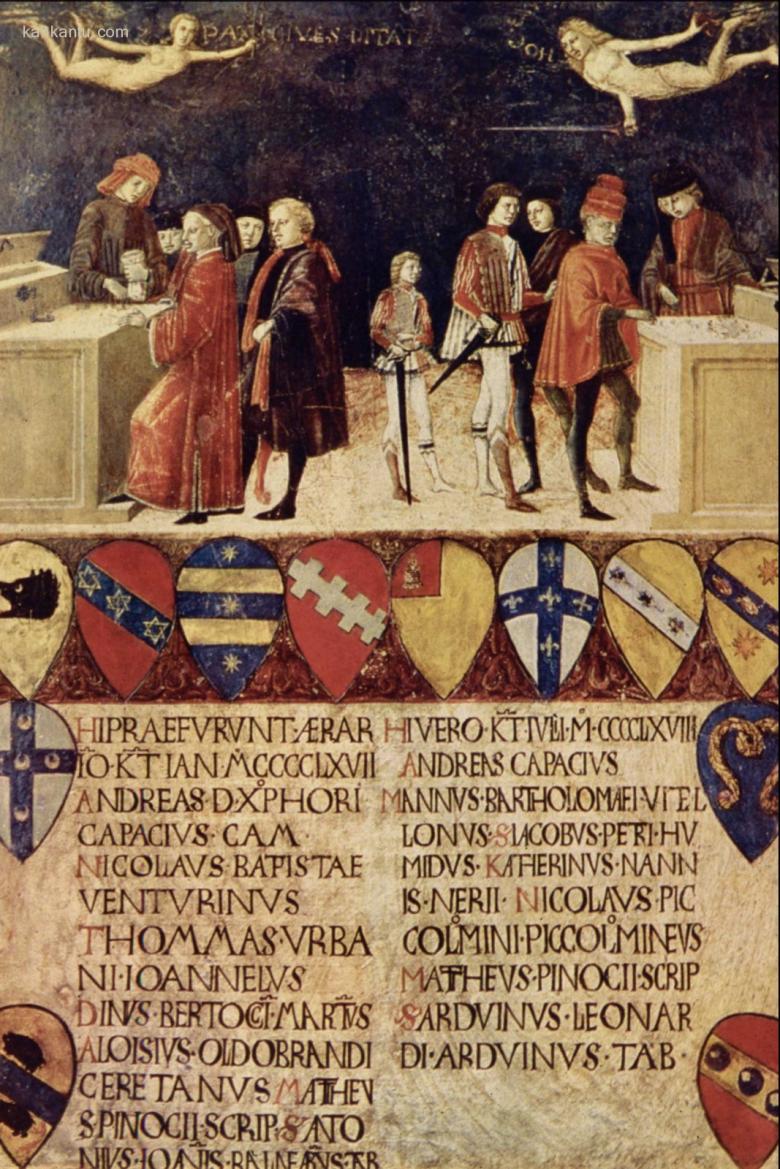 kankantu.com
PAX CIVES DITAT
HIPRAEFVRVNT·ÆRAR
IO·KT IAN·M̊CCCCLXVII
ANDREAS·D·XPHORI
CAPACIVS·CAM·
NICOLAVS·BAPISTAE
VENTVRINVS
THOMMAS·VRBA
NI·IOANNELVS
DINVS·BERTOCCI·MARTVS
ALOISIVS·OLDOBRANDI
CERETANVS MATHEV
S·PINOCII·SCRIP·SATO
HIVERO·KT IVLI·M̊·CCCCLXVIII
ANDREAS CAPACIVS
MANNVS·BARTHOLOMAEI·VITEL
LONVS·SIACOBVS·PETRI·HV
MIDVS·KATHERINVS·NANN
IS·NERII·NICOLAVS·PIC
COLMINI·PICCOLMINEVS
MATHEVS·PINOCII·SCRIP
SARDVINVS·LEONAR
DI·ARDVINVS·TAB·